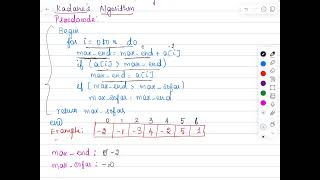 Kadane's Algorithm
Pseudocode:
Begin
for i = 0 to n do
max_end = max_end + a[i]
-2
if (a[i] > max_end)
max_end = a[i]
if (max_end > max_sofar)
max_sofar = max_end
return max_sofar
end
0 1 2 3 4 5 6
Example: -2 -1 -3 4 -2 5 1
max_end : 0 -2
max_sofar : -∞